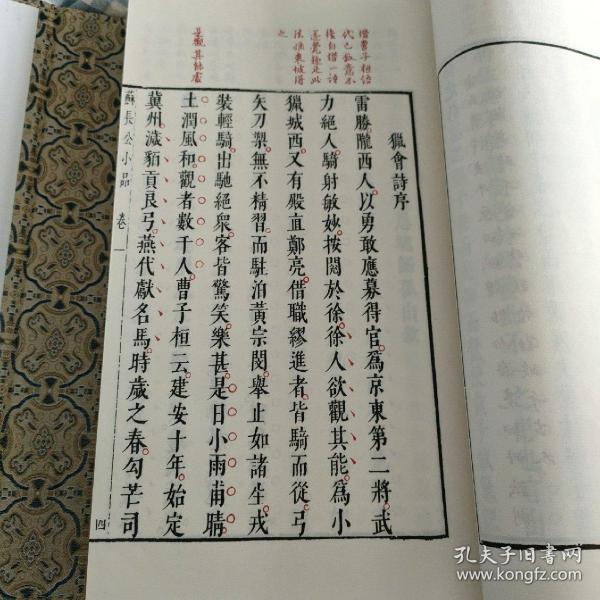 借曹子桓語
代已敘意不
獵會詩序
雷勝隴西人以勇敢應募得官爲京東第二將武
力絕人騎射敏妙按閱於徐徐人欲觀其能爲小
獵城西又有殿直鄭亮借職繆進者皆騎而從弓
矢刀槊無不精習而駐泊黃宗閔舉止如諸生戎
裝輕騎出馳絕衆客皆驚笑樂甚是日小雨甫晴
土潤風和觀者數千人曹子桓云建安十年始定
冀州濊貊貢良弓燕代獻名馬時歲之春勾芒司
蘇長公小品 卷一
四
孔夫子旧书网
www.kongfz.com